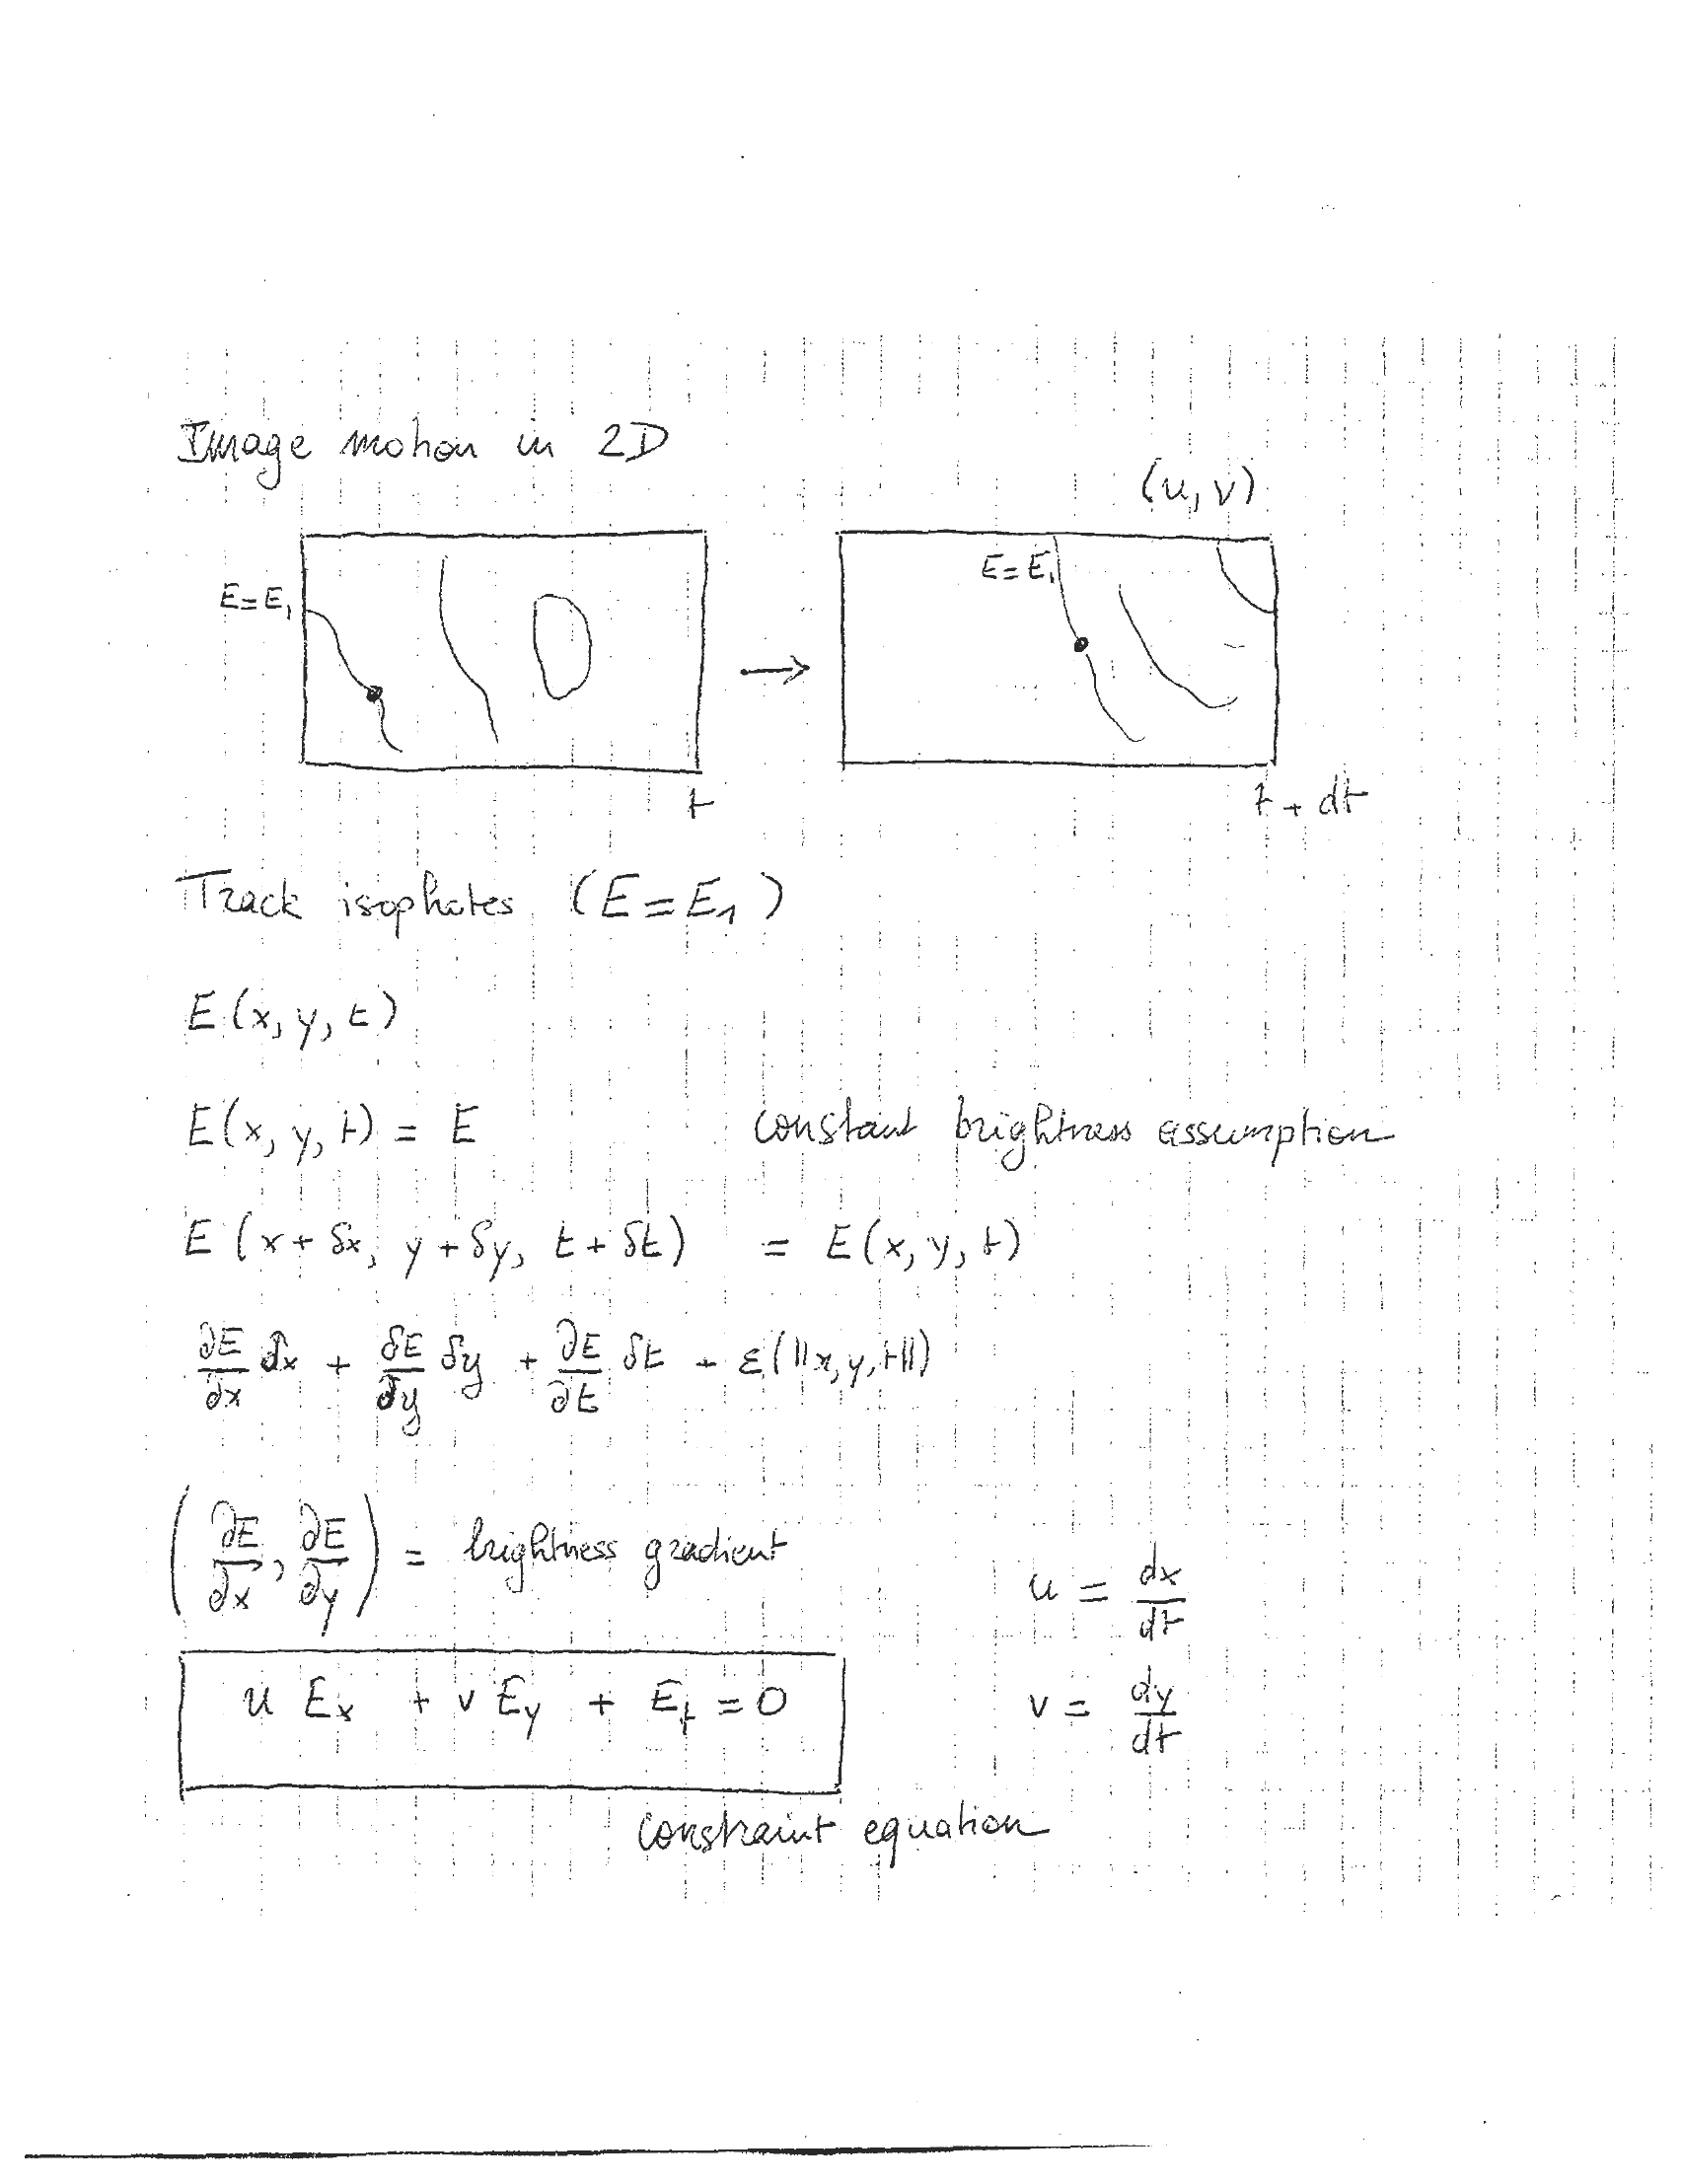 Image motion in 2D
(u, v)
E=E₁
E=E₁
t
t + dt
Track isophotes (E=E₁)
E(x, y, t)
E(x, y, t) = E    constant brightness assumption
E(x+δx, y+δy, t+δt) = E(x, y, t)
∂E/∂x δx + δE/∂y δy + ∂E/∂t δt + ε(||x, y, t||)
(∂E/∂x, ∂E/∂y) = brightness gradient
u = dx/dt
u Ex + v Ey + Et = 0
v = dy/dt
constraint equation